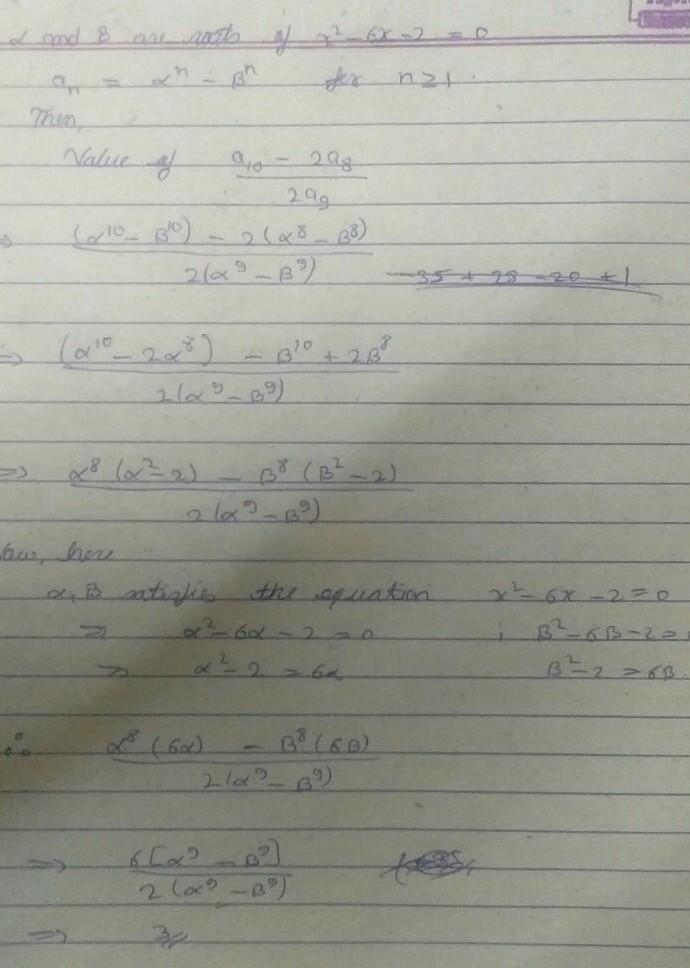 α and β are roots of x² - 6x - 2 = 0
aₙ = αⁿ - βⁿ for n ≥ 1.
Then,
Value of (a₁₀ - 2a₈) / 2a₉
⇒ ((α¹⁰ - β¹⁰) - 2(α⁸ - β⁸)) / 2(α⁹ - β⁹)
⇒ ((α¹⁰ - 2α⁸) - β¹⁰ + 2β⁸) / 2(α⁹ - β⁹)
⇒ (α⁸(α² - 2) - β⁸(β² - 2)) / 2(α⁹ - β⁹)
Now, here
α, β satisfies the equation x² - 6x - 2 = 0
⇒ α² - 6α - 2 = 0 ; β² - 6β - 2 =
⇒ α² - 2 = 6α β² - 2 = 6β
∴ (α⁸(6α) - β⁸(6β)) / 2(α⁹ - β⁹)
⇒ 6[α⁹ - β⁹] / 2(α⁹ - β⁹)
⇒ 3